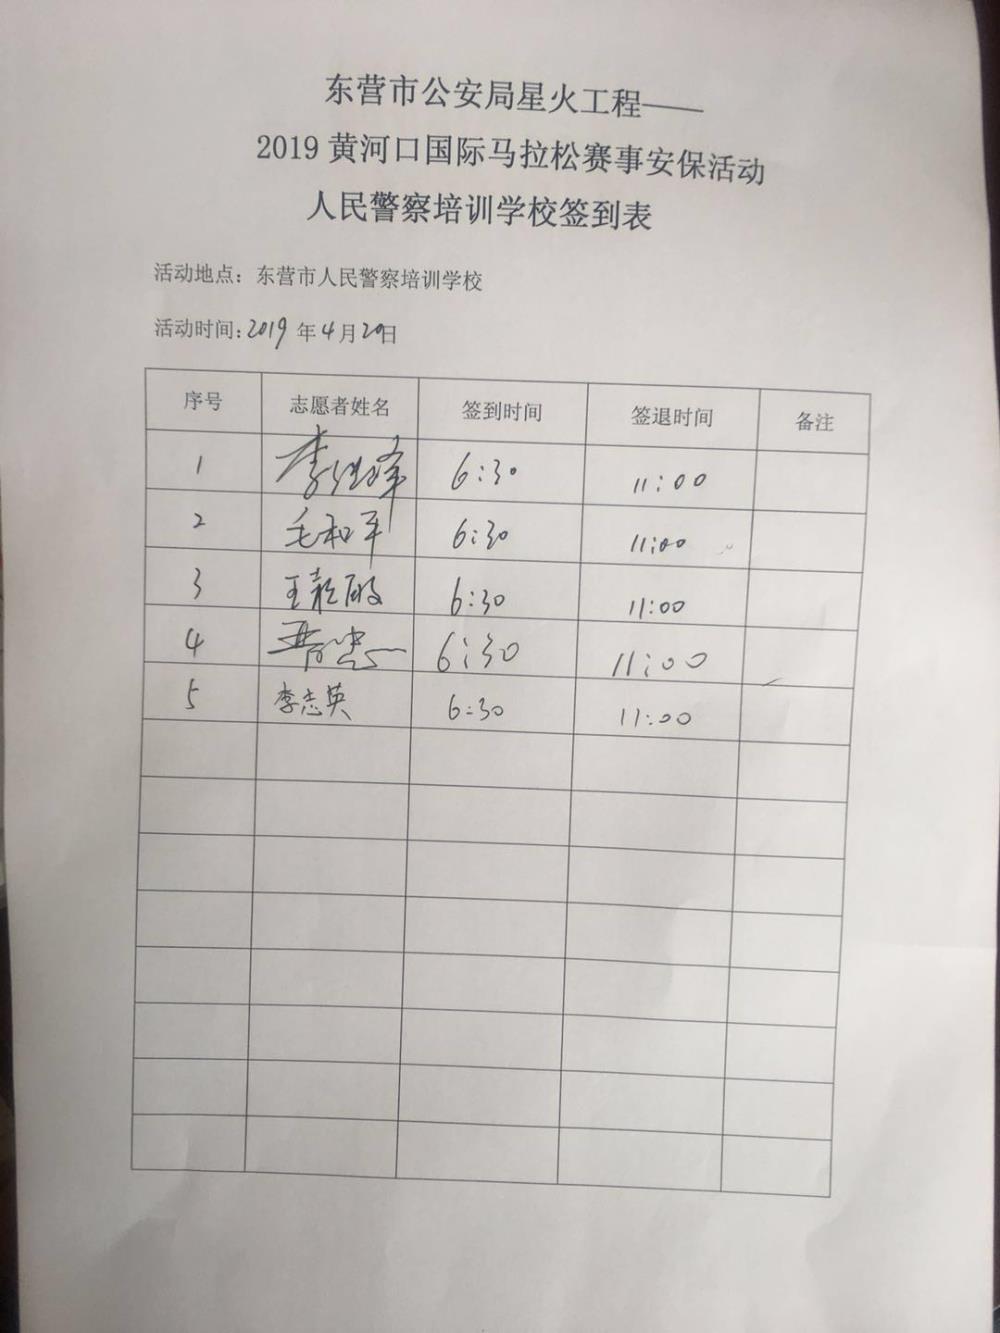 东营市公安局星火工程——
2019黄河口国际马拉松赛事安保活动
人民警察培训学校签到表
活动地点：东营市人民警察培训学校
活动时间：2019年4月20日
序号 志愿者姓名 签到时间 签退时间 备注
1 李 6:30 11:00
2 毛和平 6:30 11:00
3 王 6:30 11:00
4 6:30 11:00
5 李志英 6:30 11:00